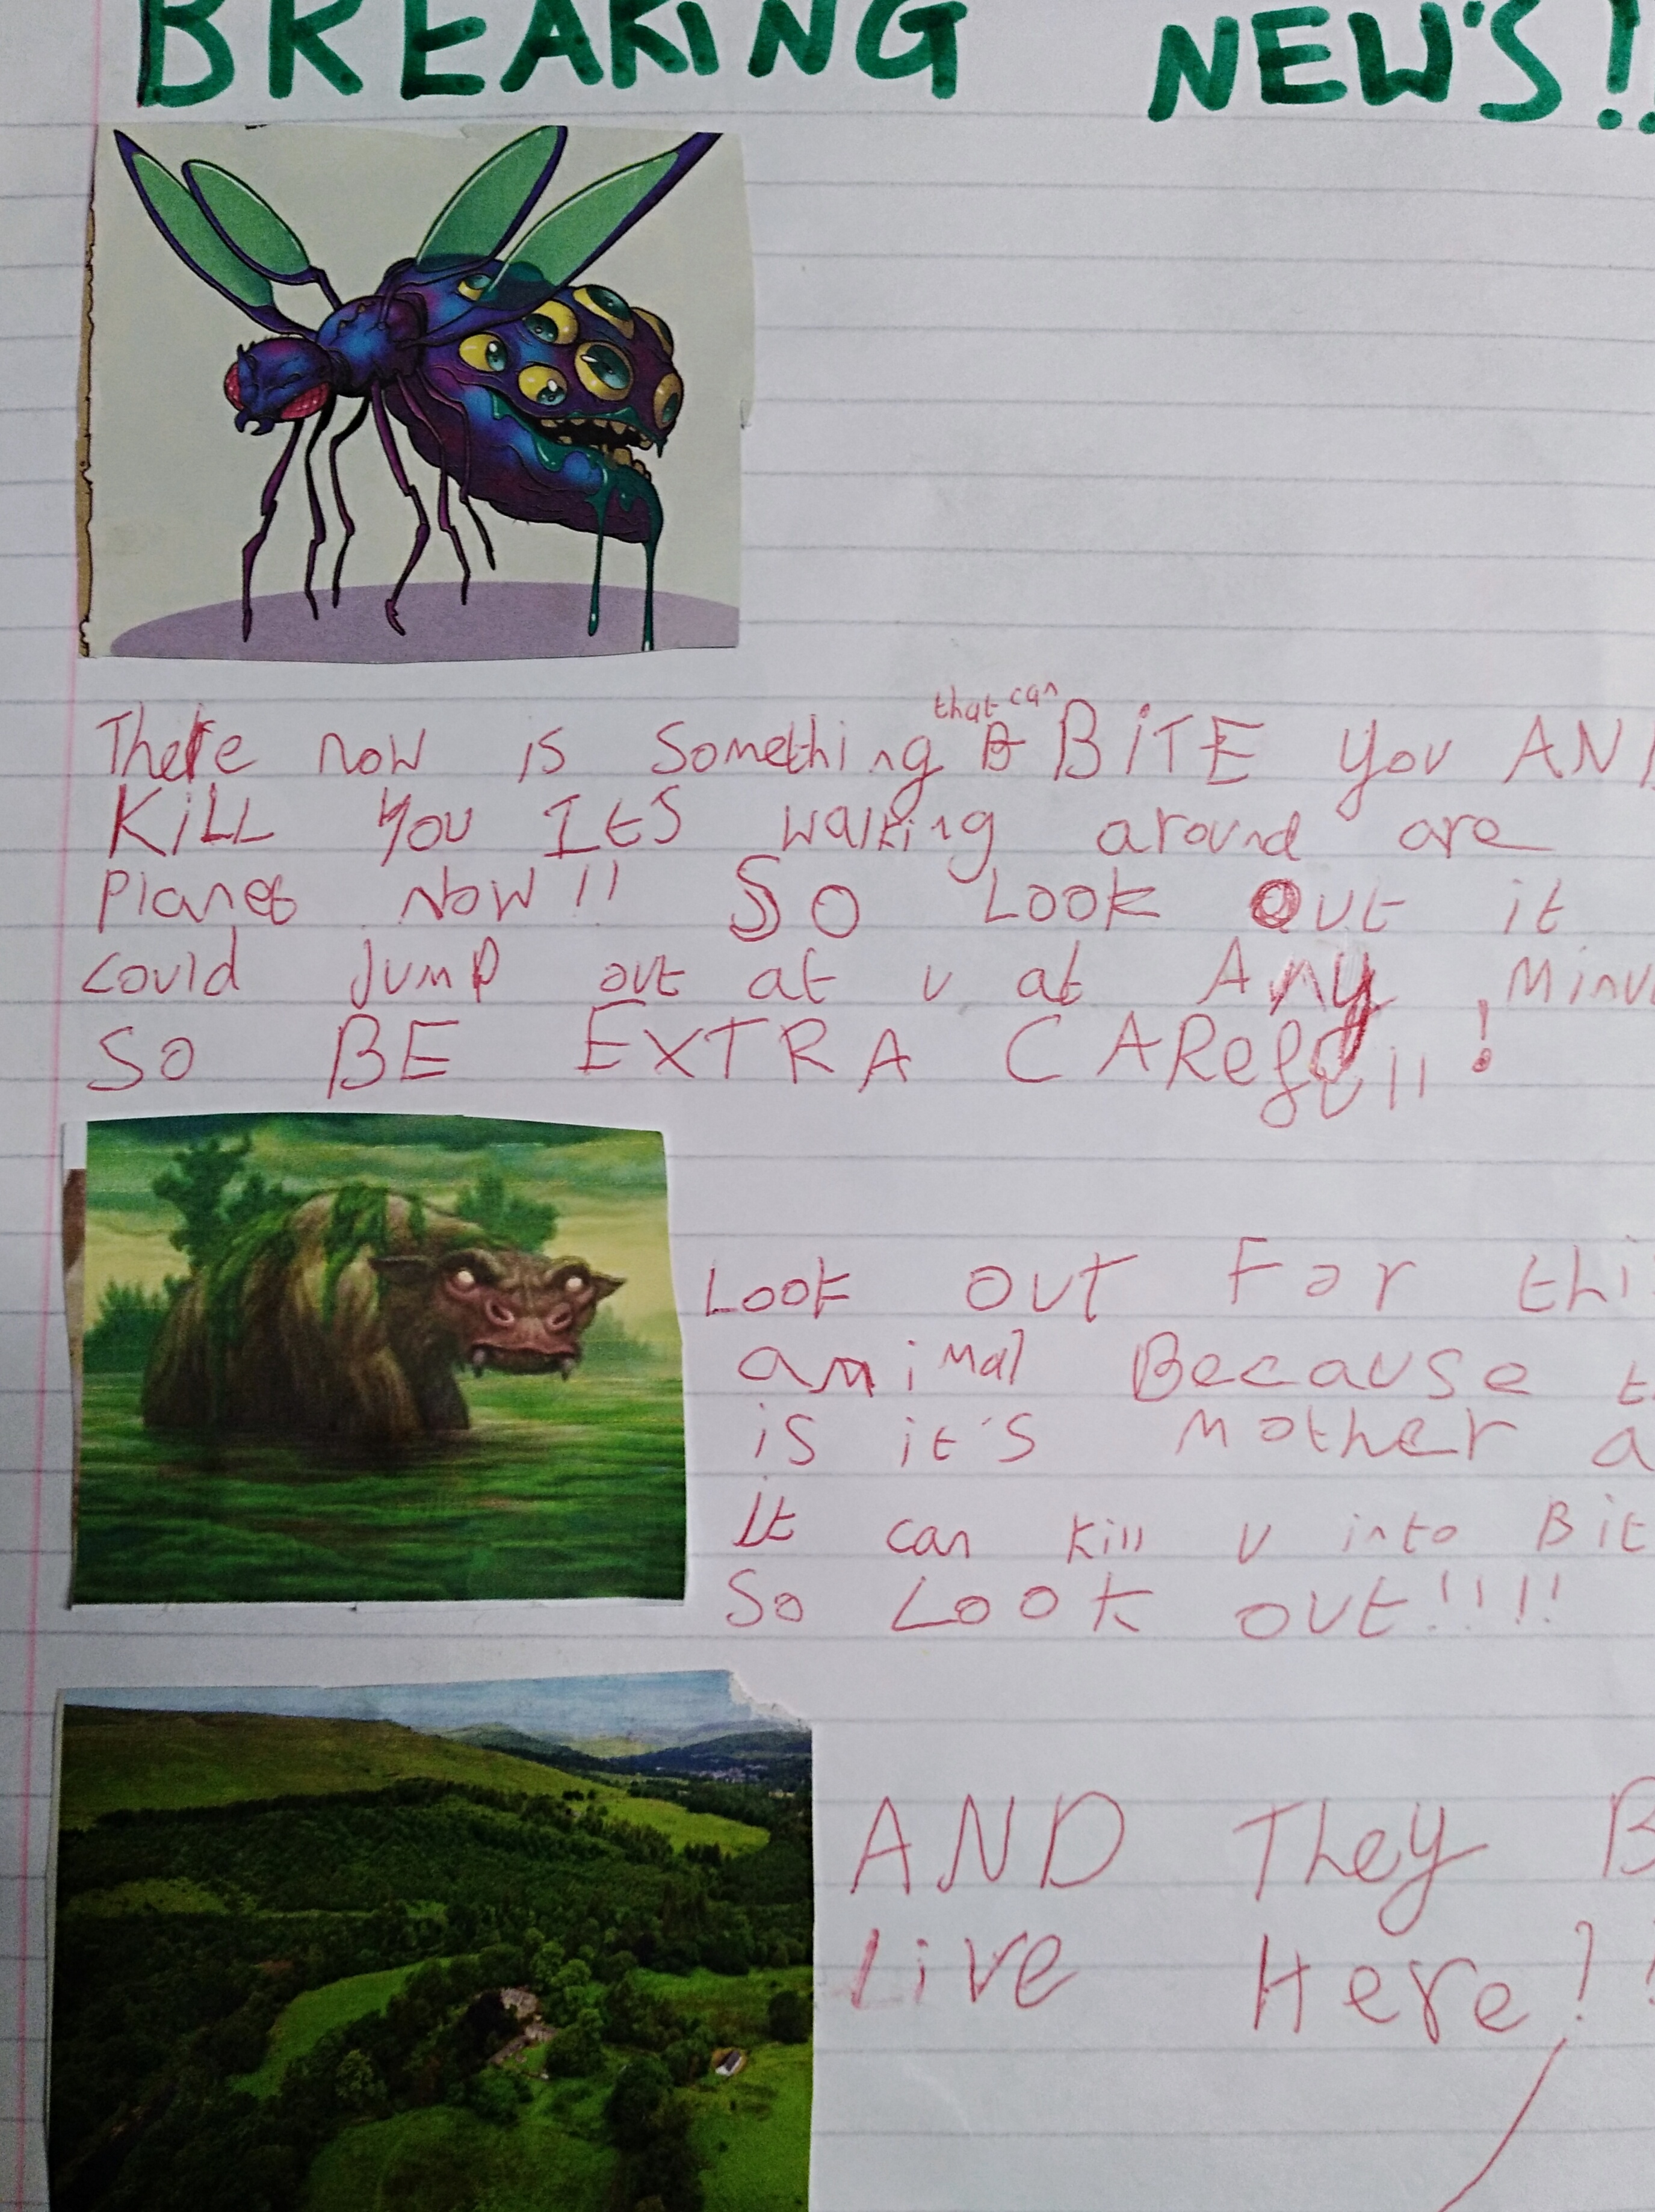 BREAKING NEW'S!!
that can
There now is Something BITE you AN
KiLL You ItS walking around are
Planet Now!! So Look Out it
could jump out at u at Any Minu
SO BE EXTRA CARefull!
Look OUT For thi
animal Because t
is it's Mother a
It can kill u into Bit
So Look out!!!!
AND They B
Live Here!!